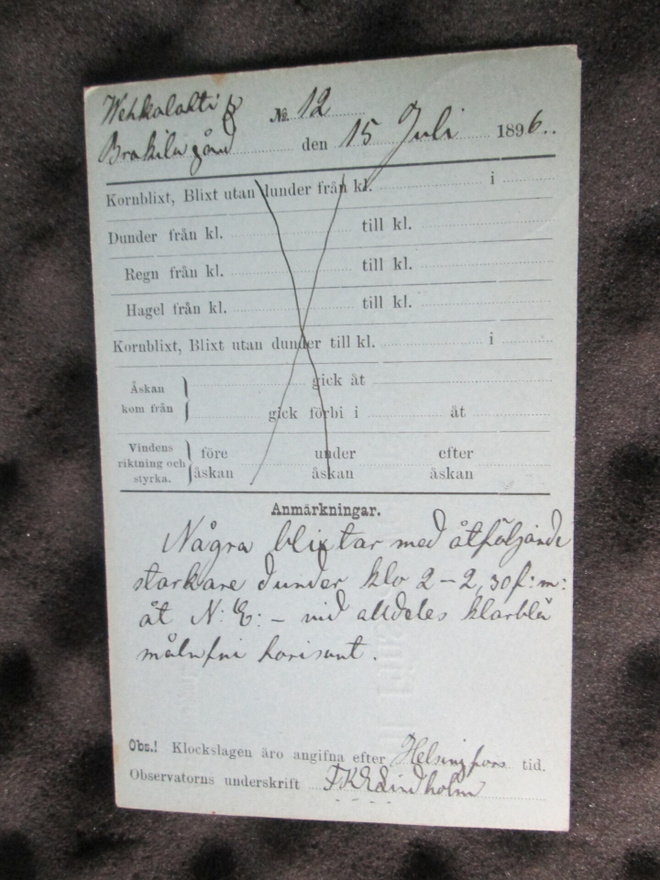 Wehkalahti № 12
Brakila gård den 15 Juli 1896.
Kornblixt, Blixt utan dunder från kl. i
Dunder från kl. till kl.
Regn från kl. till kl.
Hagel från kl. till kl.
Kornblixt, Blixt utan dunder till kl. i
Åskan kom från gick åt
gick förbi i åt
Vindens riktning och styrka. före åskan under åskan efter åskan
Anmärkningar.
Några blixtar med åtföljande
starkare dunder klo 2-2,30 f:m:
åt N:E: - vid alldeles klarblå
molnfri horisont.
Obs.! Klockslagen äro angifna efter Helsingfors tid.
Observatorns underskrift Lindholm